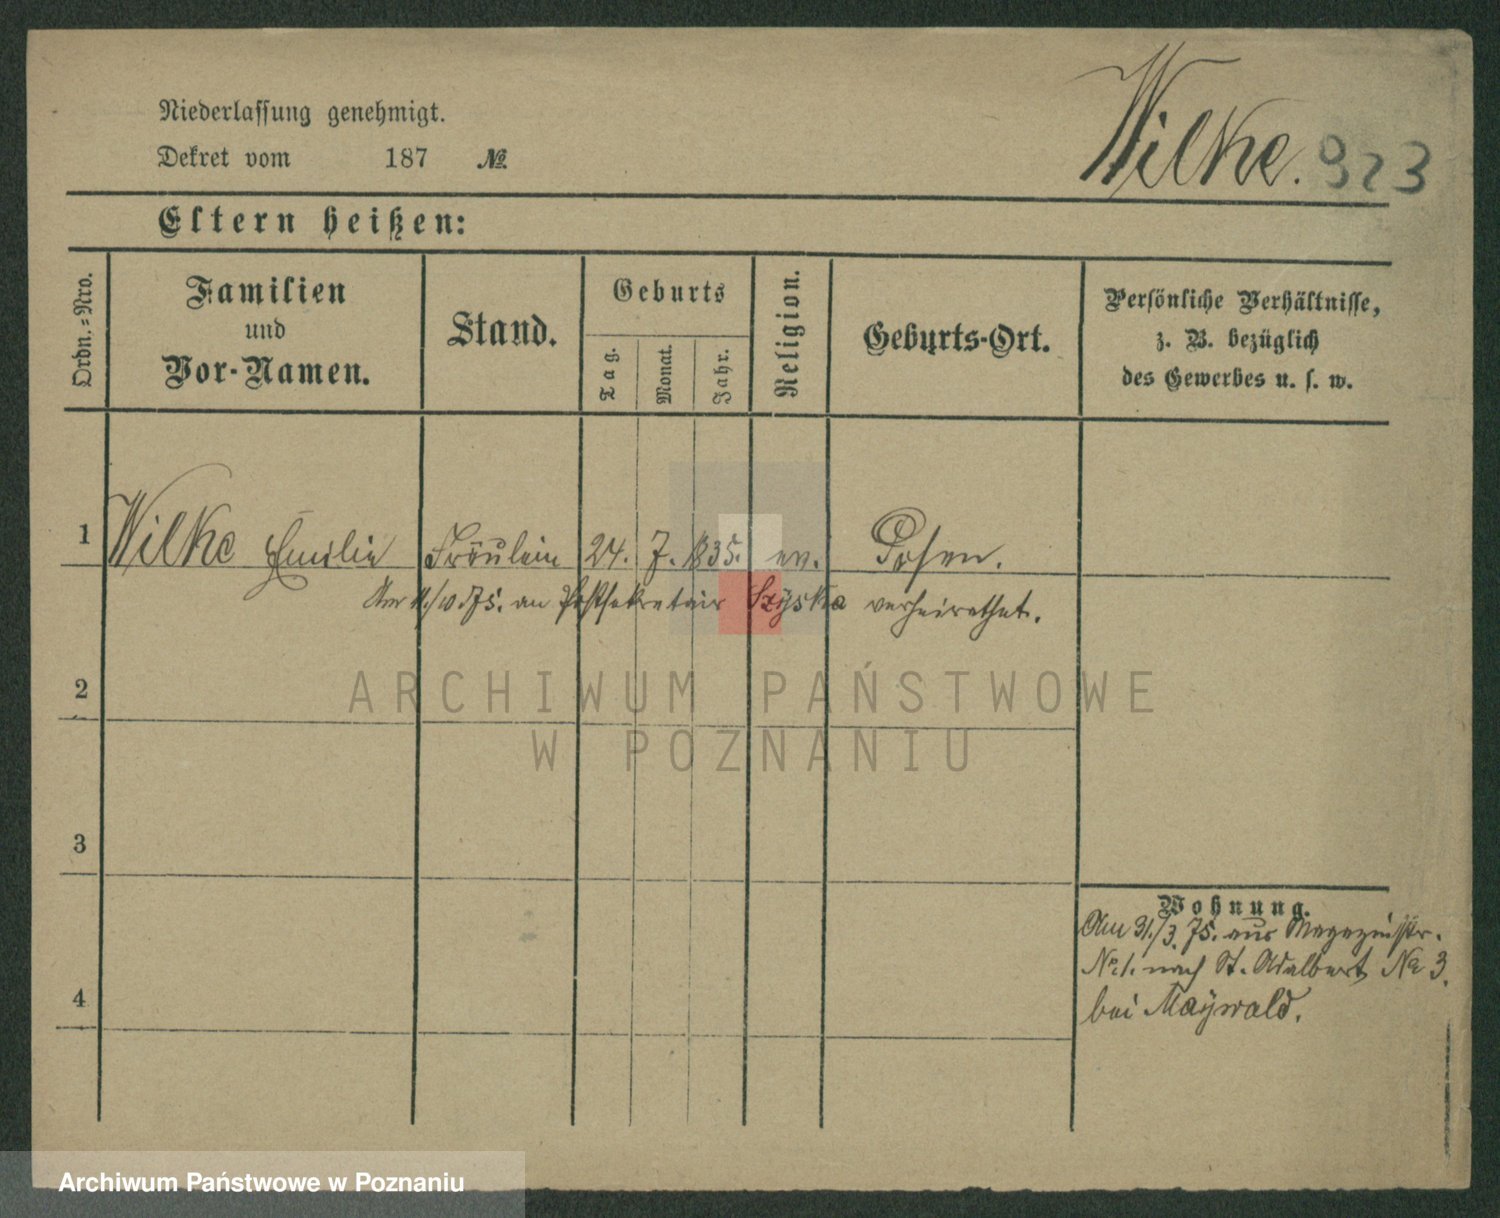 Niederlassung genehmigt.
Wilke. 923
Dekret vom 187 №
Eltern heißen:
Ordn.=Nro.
Familien
und
Vor-Namen.
Stand.
Geburts
Tag.
Monat.
Jahr.
Religion.
Geburts-Ort.
Persönliche Verhältnisse,
z. B. bezüglich
des Gewerbes u. s. w.
1 Wilke Emilie Fräulein 24. 7. 1835. ev. Posen.
Am 11./10. 75. an Postsekretair Szyska verheirathet.
2
ARCHIWUM PAŃSTWOWE
W POZNANIU
3
Wohnung.
Am 31./3. 75. aus Magazinstr.
№ 1. nach St. Adalbert № 3.
bei Maywald.
4
Archiwum Państwowe w Poznaniu